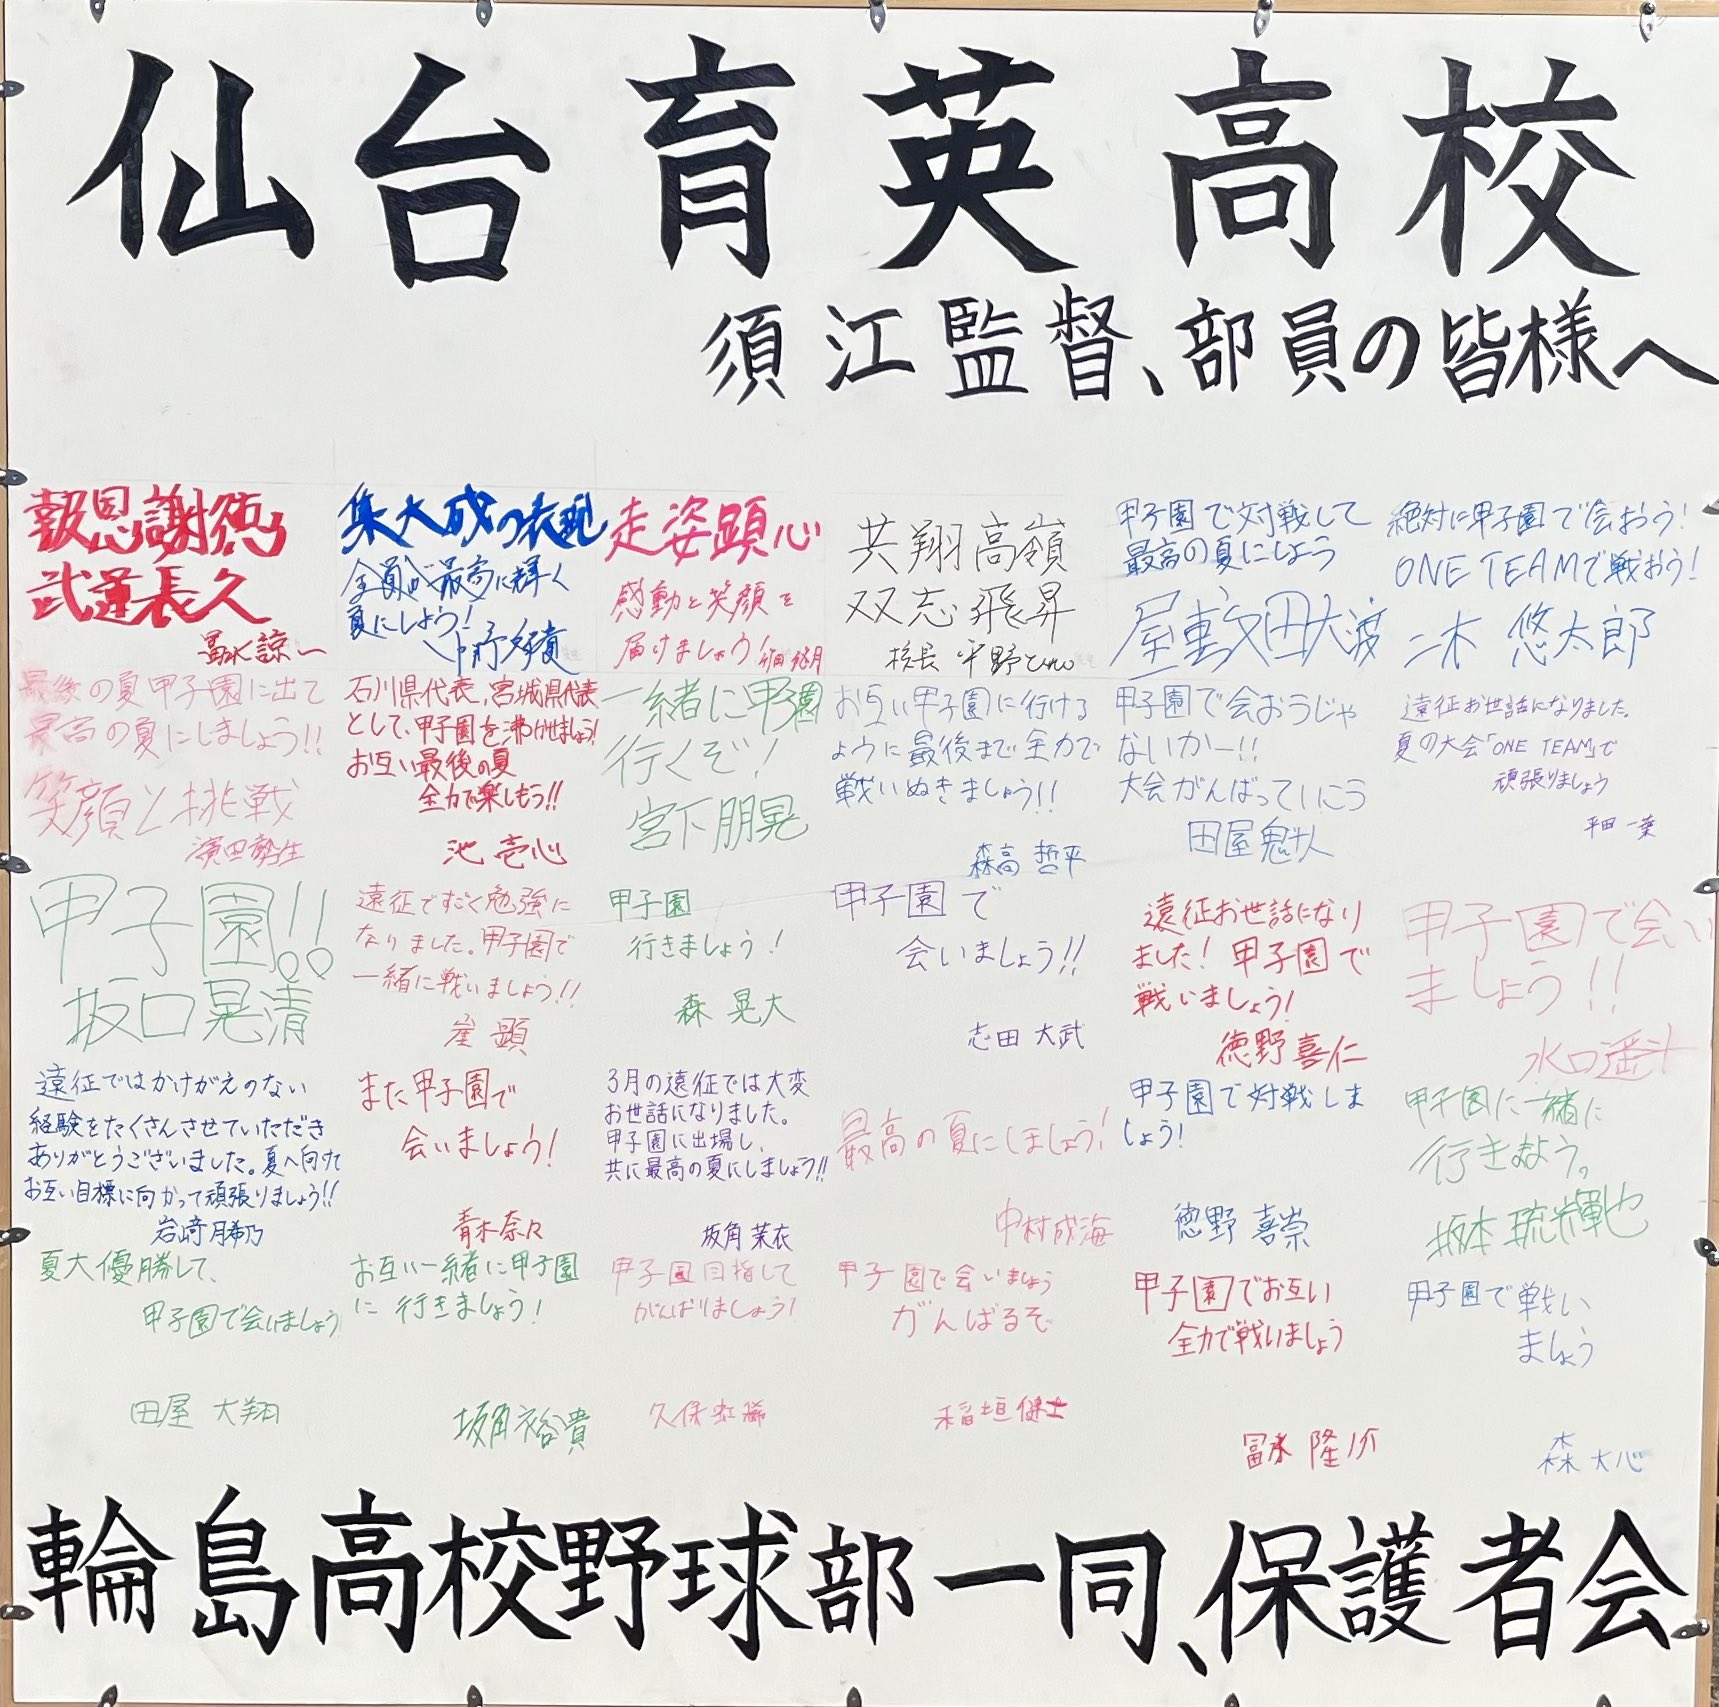 仙台育英高校
須江監督、部員の皆様へ
報恩謝徳
武運長久
冨水 諒一
集大成の表現
全員が最高に輝く
夏にしよう!
走姿顕心
感動と笑顔を
届けましょう
共翔高嶺
双志飛昇
校長 平野
甲子園で対戦して
最高の夏にしよう
屋敷田大渡
絶対に甲子園で会おう!
ONE TEAMで戦おう!
二木 悠太郎
最後の夏甲子園に出て
最高の夏にしましょう!!
笑顔と挑戦
濱田
石川県代表、宮城県代表
として、甲子園を沸かせましょう!
お互い最後の夏
全力で楽しもう!!
池 壱心
一緒に甲子園
行くぞ!
宮下朋晃
お互い甲子園に行ける
ように最後まで全力で
戦いぬきましょう!!
森高 哲平
甲子園で会おうじゃ
ないかー!!
大会がんばっていこう
田屋魁斗
遠征お世話になりました。
夏の大会「ONE TEAM」で
頑張りましょう
平田 一葉
甲子園!!
坂口晃清
遠征ですごく勉強に
なりました。甲子園で
一緒に戦いましょう!!
崖 顕
甲子園
行きましょう!
森 晃大
甲子園で
会いましょう!!
志田 大武
遠征お世話になり
ました! 甲子園で
戦いましょう!
徳野喜仁
甲子園で会い
ましょう!!
水口遥斗
遠征ではかけがえのない
経験をたくさんさせていただき
ありがとうございました。夏へ向けて
お互い目標に向かって頑張りましょう!!
岩﨑 勝乃
また甲子園で
会いましょう!
青木奈々
3月の遠征では大変
お世話になりました。
甲子園に出場し、
共に最高の夏にしましょう!!
坂角 茉衣
最高の夏にしましょう!
中村成海
甲子園で対戦しま
しょう!
徳野 喜崇
甲子園に一緒に
行きましょう。
坂本 琉輝也
夏大優勝して、
甲子園で会いましょう
田屋 大翔
お互い一緒に甲子園
に行きましょう!
坂角裕貴
甲子園目指して
がんばりましょう!
久保虹稀
甲子園で会いましょう
がんばるぞ
稲垣健士
甲子園でお互い
全力で戦いましょう
冨水 隆介
甲子園で戦い
ましょう
森 大心
輪島高校野球部一同、保護者会